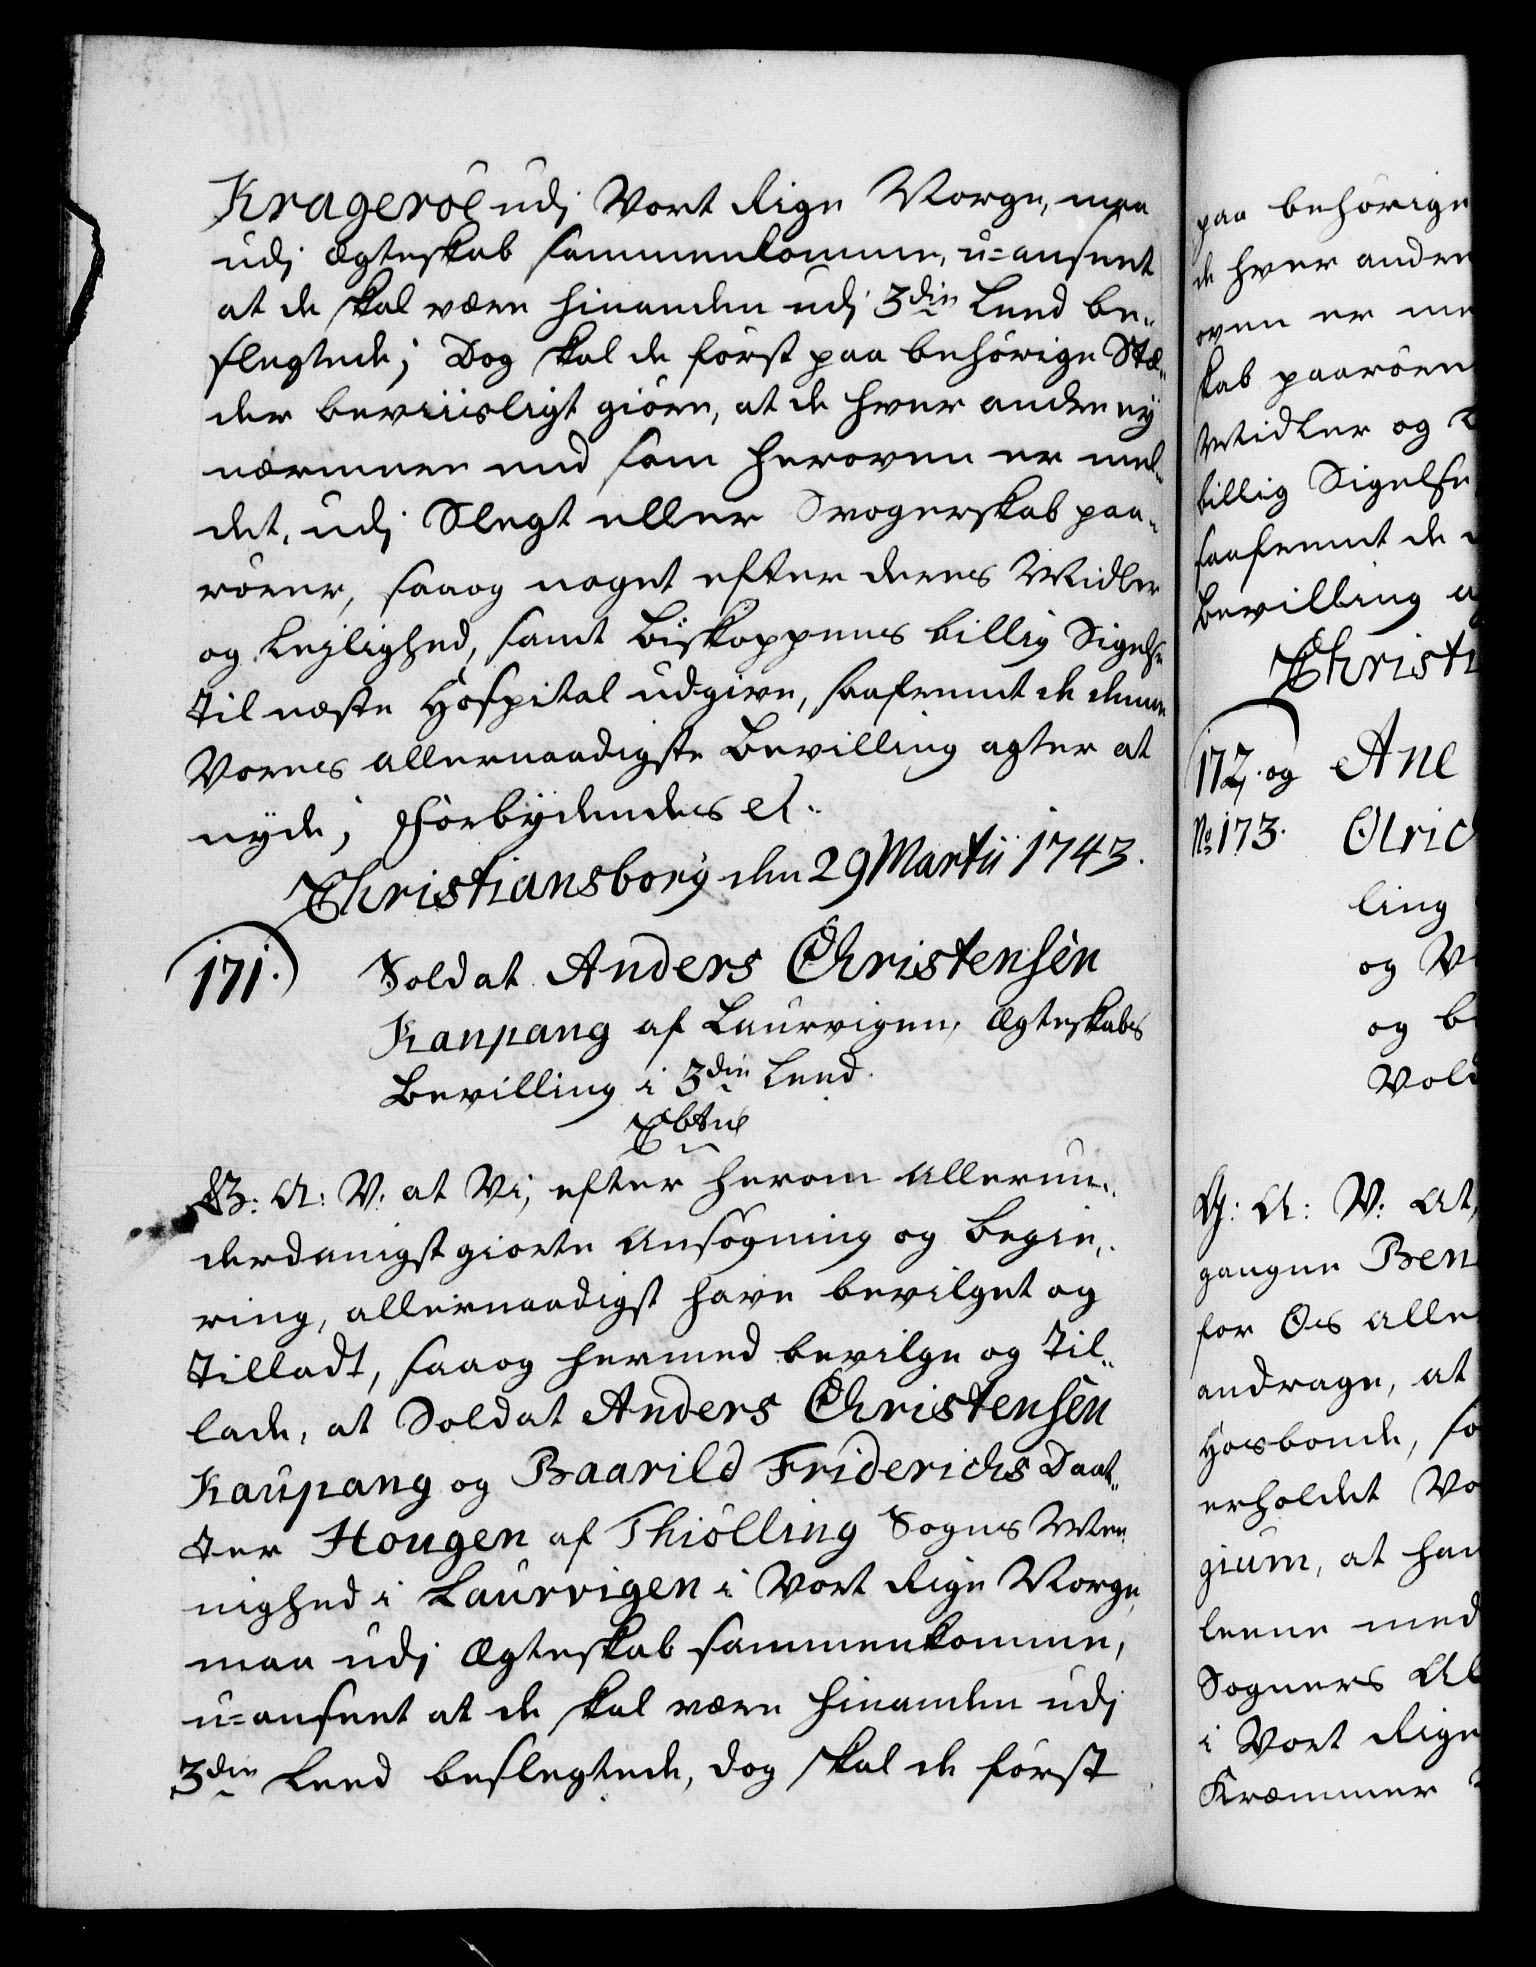 Krageröe udj Vort Rige Norge, maa
udj Ægteskab sammenkomme, u-anseet
at de skal være hinanden udj 3die Leed be-
slegtede; Dog skal de först paa behörige Stæ-
der beviisligt giöre, at de hver andre ey
nærmere end som heroven er mel-
det, udj Slegt eller Svogerskab paa-
rörer, saa og noget efter deres Midler
og Lejlighed, samt Biskoppens billig Sigelse
til næste Hospital udgive, saafremt de denne
Vores allernaadigste Bevilling agter at
nyde; Forbydendes &.
Christiansborg den 29 Martii 1743.
171. Soldat Anders Christensen
Kaupang af Laurvigen, Ægteskabs
Bevilling i 3die Leed.
G: A: V. at Vi, efter herom allerun-
derdanigst giorte Ansögning og Begie-
ring, allernaadigst have bevilget og
tilladt, saa og hermed bevilge og til-
lade, at Soldat Anders Christensen
Kaupang og Baarild Friderichs Daat-
ter Hougen af Thiölling Sogns Me-
nighed i Laurvigen i Vort Rige Norge,
maa udj Ægteskab sammenkomme,
u-anseet at de skal være hinanden udj
3die Leed beslegtede, dog skal de först
paa behörige
de hver andre
oven er me
skab paarören
Midler og
billig Sigelse
saafremt de
Bevilling a
Christi
172. og Ane
No 173. Olric
ling
og V
og b
Vold
G: A: V: At,
gangne Ben
for Os alle
andrage, at
Hosbonde, so
erholdet Vo
gium, at han
leene med
Sogners Al
i Vort Rige
Kræmmer